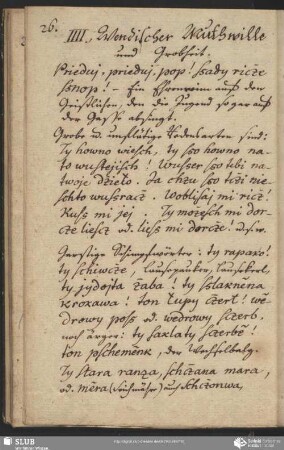 26.
IIII. Wendischer Muthwille
und Grobheit.
Priedui, priedui, pop! ssady ričze
ssnop! – Ein Ehrenreim auf den
Geistlichen, den die Jugend sogar auf
der Gasse absingt.
Grobe u. unflätige Redensarten sind:
Ty howno wiesch, ty sso howno na-
to wustejisch! Wusser sso tebi na
twoje dzielo. Ja chzu sso tiži nie-
schto wussracz. Woblisaj mi ričz!
Kuss mi jej. Ty možesch mi dor-
cze liescz od. liess mi dorcze: usw.
Garstige Schimpfwörter: ty rapako!
ty schiwcze, Lausepauker, Lausekerl,
ty jydojta žaba! ty sslaknena
krozawa! ton tupy Czert! wě-
drowy poss od. wědrowy sczerb.
noch ärger: ty saklaty sczerbo!
ton pschemenk, der Wechselbalg.
Ty stara ranza, schčzana mara,
od. měra (Suchmähre) auch schčzonwa,
SLUB